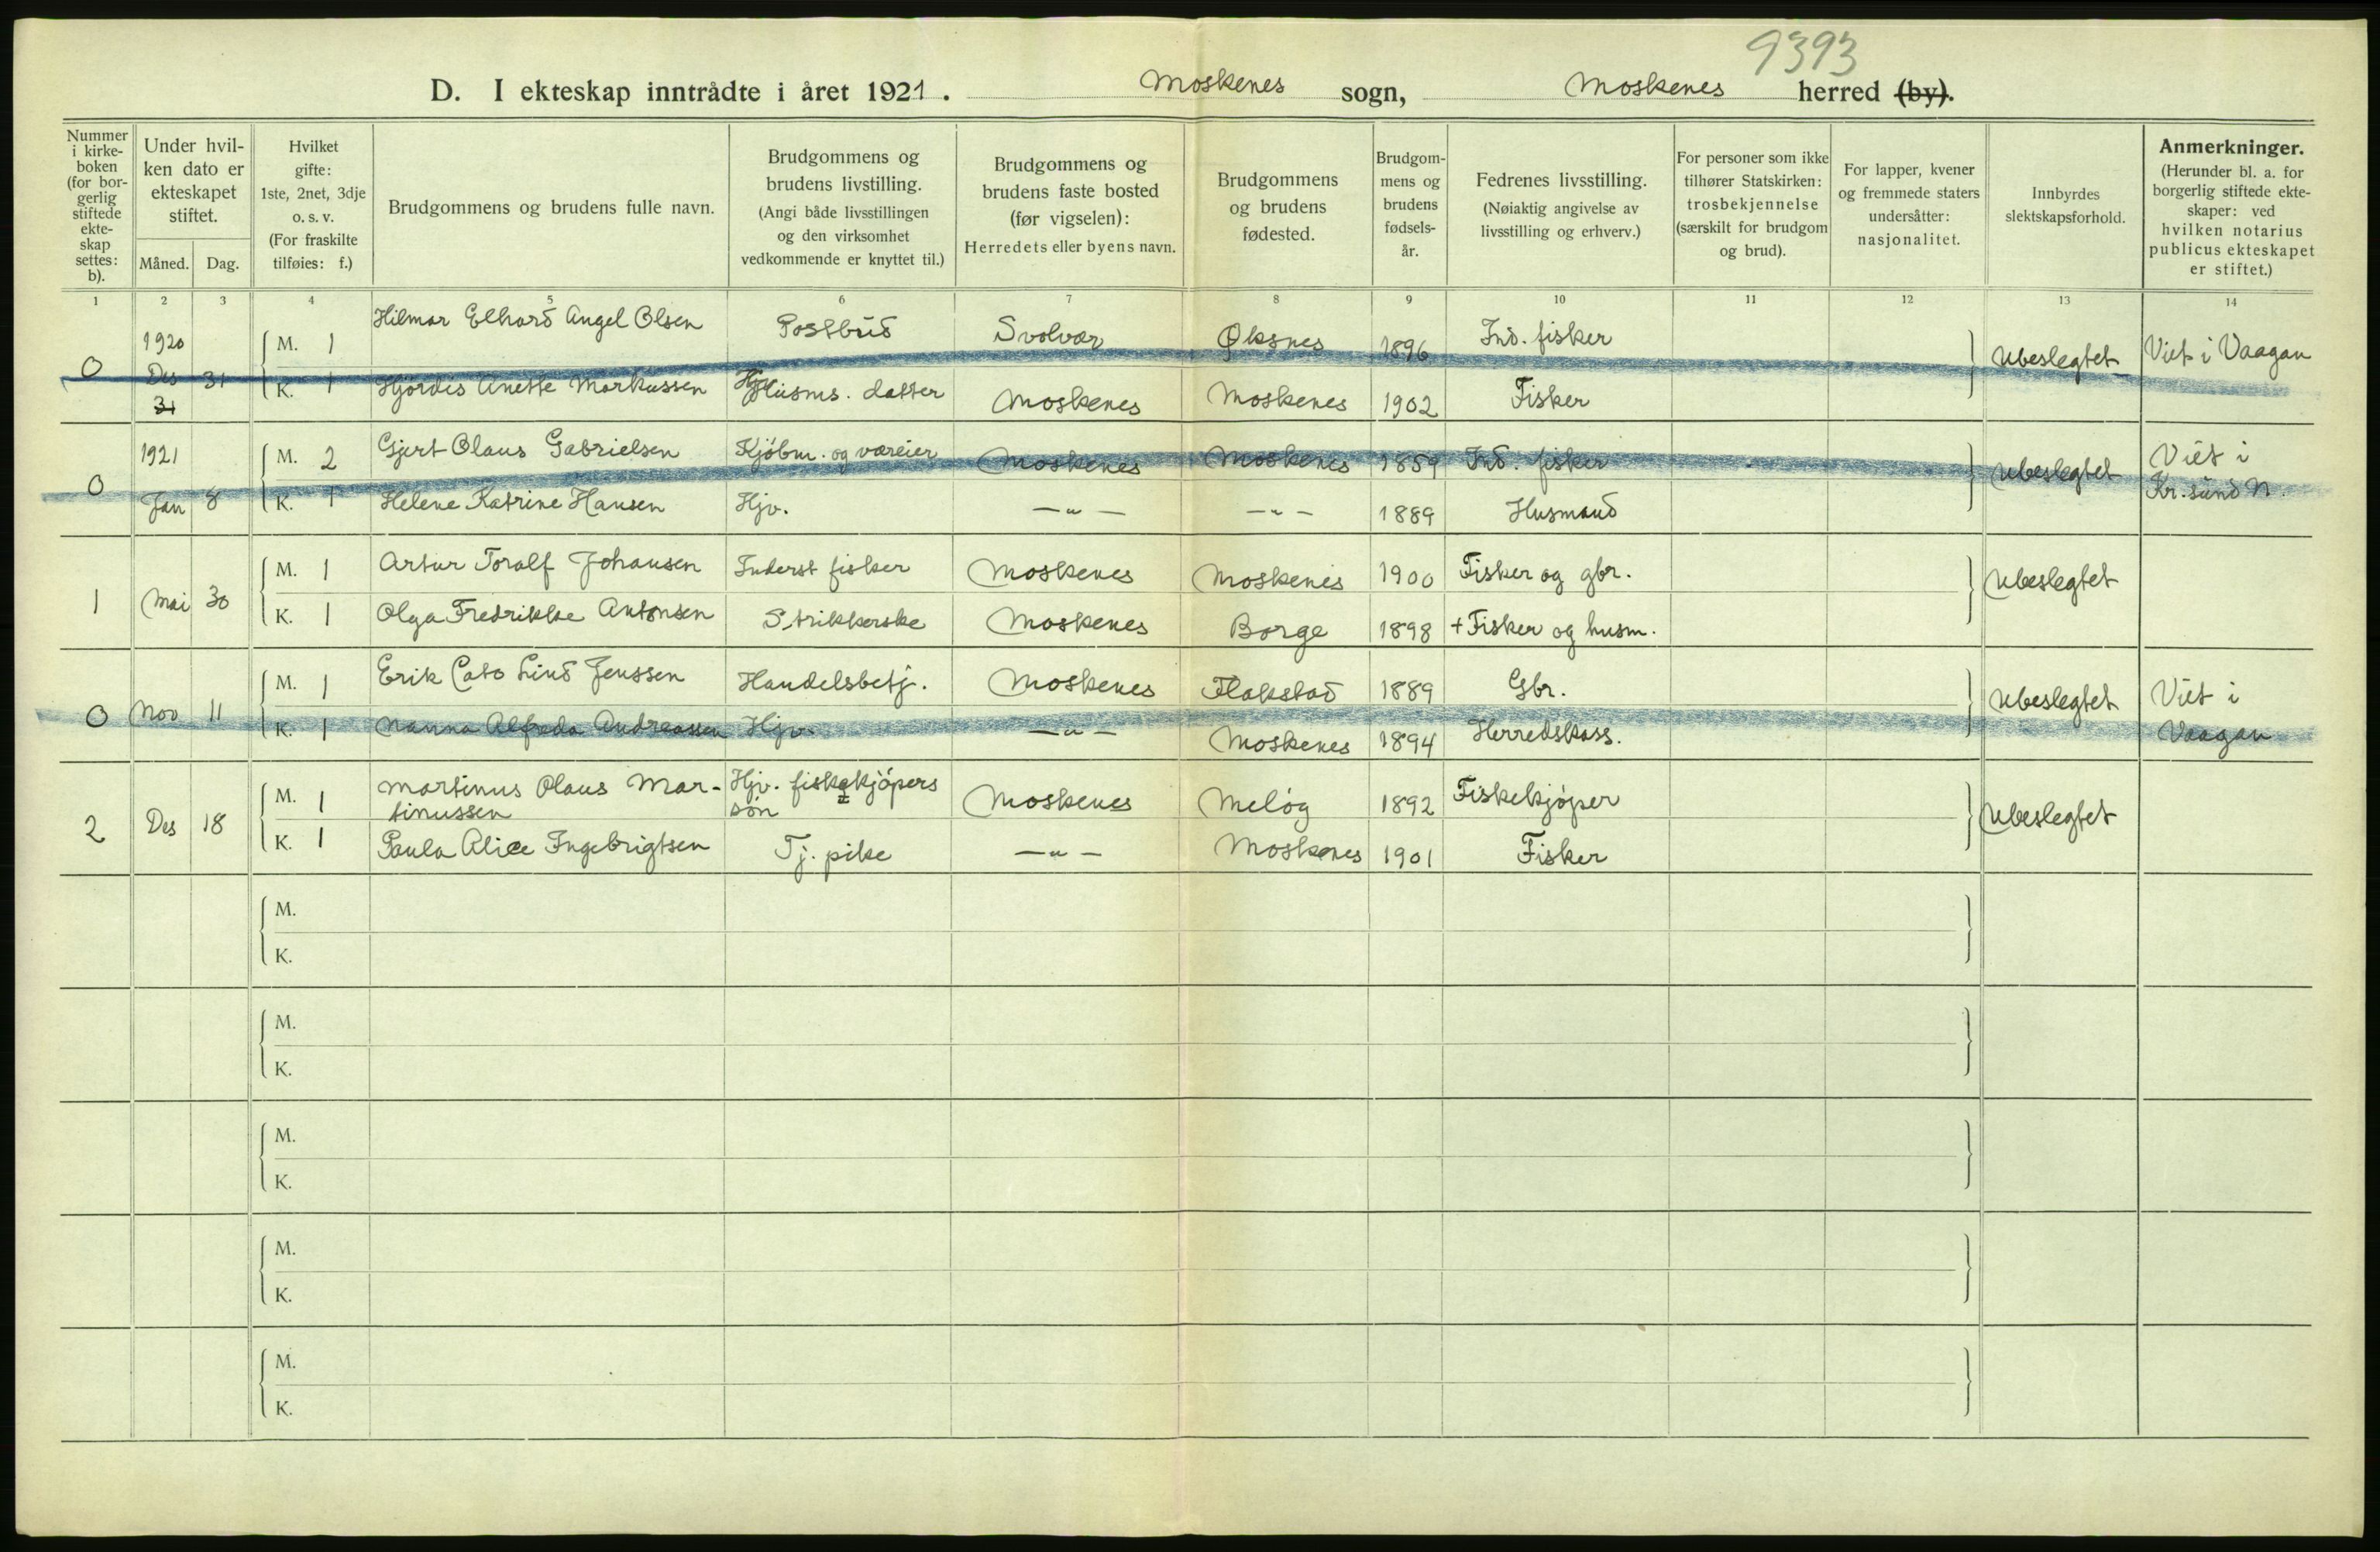 9393
D. I ekteskap inntrådte i året 1921. Moskenes sogn, Moskenes herred (by).
Nummer i kirkeboken (for borgerlig stiftede ekteskap settes: b).
Under hvilken dato er ekteskapet stiftet.
Måned. Dag.
Hvilket gifte: 1ste, 2net, 3dje o. s. v. (For fraskilte tilføies: f.)
Brudgommens og brudens fulle navn.
Brudgommens og brudens livstilling. (Angi både livsstillingen og den virksomhet vedkommende er knyttet til.)
Brudgommens og brudens faste bosted (før vigselen): Herredets eller byens navn.
Brudgommens og brudens fødested.
Brudgommens og brudens fødsels-år.
Fedrenes livsstilling. (Nøiaktig angivelse av livsstilling og erhverv.)
For personer som ikke tilhører Statskirken: trosbekjennelse (særskilt for brudgom og brud).
For lapper, kvener og fremmede staters undersåtter: nasjonalitet.
Innbyrdes slektskapsforhold.
Anmerkninger. (Herunder bl. a. for borgerlig stiftede ekteskaper: ved hvilken notarius publicus ekteskapet er stiftet.)
1 2 3 4 5 6 7 8 9 10 11 12 13 14
0 1920 Des 31 M. 1 Hilmar Elhard Angel Olsen Postbud Svolvær Øksnes 1896 Ind. fisker Ubeslegtet Viet i Vaagan
31 K. 1 Hjördis Anette Markussen Husms. datter Moskenes Moskenes 1902 Fisker
0 1921 Jan 8 M. 2 Gjert Olaus Gabrielsen Kjöbm. og væreier Moskenes Moskenes 1859 Ind. fisker Ubeslegtet Viet i Kr.sund N.
K. 1 Helene Katrine Hansen Hjv. — " — — " — 1889 Husmand
1 Mai 30 M. 1 Artur Toralf Johansen Inderst fisker Moskenes Moskenes 1900 Fisker og gbr. Ubeslegtet
K. 1 Olga Fredrikke Antonsen Strikkerske Moskenes Borge 1898 + Fisker og husm.
0 Nov 11 M. 1 Erik Cato Lind Jenssen Handelsbetj. Moskenes Flakstad 1889 Gbr. Ubeslegtet Viet i Vaagan
K. 1 Nanna Alfreda Andreassen Hjv. — " — Moskenes 1894 Herredskass.
2 Des 18 M. 1 Martinus Olaus Martinussen Hjv. fiskekjöpers sön Moskenes Melög 1892 Fiskekjöper Ubeslegtet
K. 1 Paula Alice Ingebrigtsen Tj. pike — " — Moskenes 1901 Fisker
M.
K.
M.
K.
M.
K.
M.
K.
M.
K.